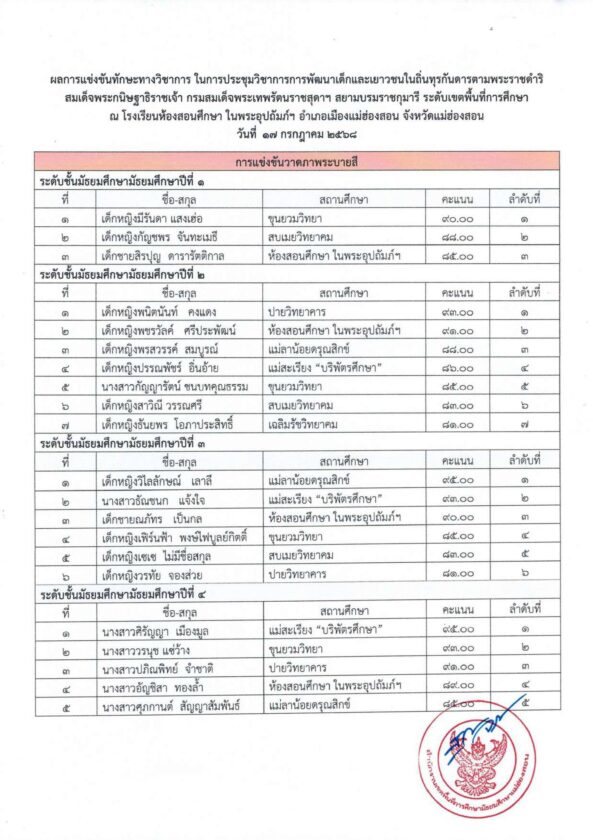 ผลการแข่งขันทักษะทางวิชาการ ในการประชุมวิชาการการพัฒนาเด็กและเยาวชนในถิ่นทุรกันดารตามพระราชดำริ
สมเด็จพระกนิษฐาธิราชเจ้า กรมสมเด็จพระเทพรัตนราชสุดาฯ สยามบรมราชกุมารี ระดับเขตพื้นที่การศึกษา
ณ โรงเรียนห้องสอนศึกษา ในพระอุปถัมภ์ฯ อำเภอเมืองแม่ฮ่องสอน จังหวัดแม่ฮ่องสอน
วันที่ ๑๗ กรกฎาคม ๒๕๖๘
การแข่งขันวาดภาพระบายสี
ระดับชั้นมัธยมศึกษามัธยมศึกษาปีที่ ๑
ที่ ชื่อ-สกุล สถานศึกษา คะแนน ลำดับที่
๑ เด็กหญิงมีรันดา แสงเฮ่อ ขุนยวมวิทยา ๙๐.๐๐ ๑
๒ เด็กหญิงกัญชพร จันทะเมธี สบเมยวิทยาคม ๘๘.๐๐ ๒
๓ เด็กชายสิรปุญ ดารารัตติกาล ห้องสอนศึกษา ในพระอุปถัมภ์ฯ ๘๕.๐๐ ๓
ระดับชั้นมัธยมศึกษามัธยมศึกษาปีที่ ๒
ที่ ชื่อ-สกุล สถานศึกษา คะแนน ลำดับที่
๑ เด็กหญิงพนิตนันท์ คงแดง ปายวิทยาคาร ๙๓.๐๐ ๑
๒ เด็กหญิงพชรวัลค์ ศรีประพัฒน์ ห้องสอนศึกษา ในพระอุปถัมภ์ฯ ๙๑.๐๐ ๒
๓ เด็กหญิงพรสวรรค์ สมบูรณ์ แม่ลาน้อยดรุณสิกข์ ๘๘.๐๐ ๓
๔ เด็กหญิงปรรณพัชร์ อิ่นอ้าย แม่สะเรียง "บริพัตรศึกษา" ๘๖.๐๐ ๔
๕ นางสาวกัญญารัตน์ ชนบทคุณธรรม ขุนยวมวิทยา ๘๕.๐๐ ๕
๖ เด็กหญิงสาวิณี วรรณศรี สบเมยวิทยาคม ๘๓.๐๐ ๖
๗ เด็กหญิงธันยพร โอภาประสิทธิ์ เฉลิมรัชวิทยาคม ๘๑.๐๐ ๗
ระดับชั้นมัธยมศึกษามัธยมศึกษาปีที่ ๓
ที่ ชื่อ-สกุล สถานศึกษา คะแนน ลำดับที่
๑ เด็กหญิงวิไลลักษณ์ เลาลี แม่ลาน้อยดรุณสิกข์ ๙๕.๐๐ ๑
๒ นางสาวธัณชนก แจ้งใจ แม่สะเรียง "บริพัตรศึกษา" ๙๓.๐๐ ๒
๓ เด็กชายณภัทร เป็นกล ห้องสอนศึกษา ในพระอุปถัมภ์ฯ ๙๐.๐๐ ๓
๔ เด็กหญิงเพิร์นฟ้า พงษ์ไพบูลย์กิตติ์ ขุนยวมวิทยา ๘๕.๐๐ ๔
๕ เด็กหญิงเซเซ ไม่มีชื่อสกุล สบเมยวิทยาคม ๘๓.๐๐ ๕
๖ เด็กหญิงวรทัย จองส่วย ปายวิทยาคาร ๘๑.๐๐ ๖
ระดับชั้นมัธยมศึกษามัธยมศึกษาปีที่ ๔
ที่ ชื่อ-สกุล สถานศึกษา คะแนน ลำดับที่
๑ นางสาวศิรัญญา เมืองมูล แม่สะเรียง "บริพัตรศึกษา" ๙๕.๐๐ ๑
๒ นางสาววรนุช แซ่ว้าง ขุนยวมวิทยา ๙๓.๐๐ ๒
๓ นางสาวปภิณพิทย์ จำชาติ ปายวิทยาคาร ๙๑.๐๐ ๓
๔ นางสาวอัญชิสา ทองล้ำ ห้องสอนศึกษา ในพระอุปถัมภ์ฯ ๘๙.๐๐ ๔
๕ นางสาวศุภกานต์ สัญญาสัมพันธ์ แม่ลาน้อยดรุณสิกข์ ๘๕.๐๐ ๕
สำนักงานเขตพื้นที่การศึกษามัธยมศึกษาแม่ฮ่องสอน